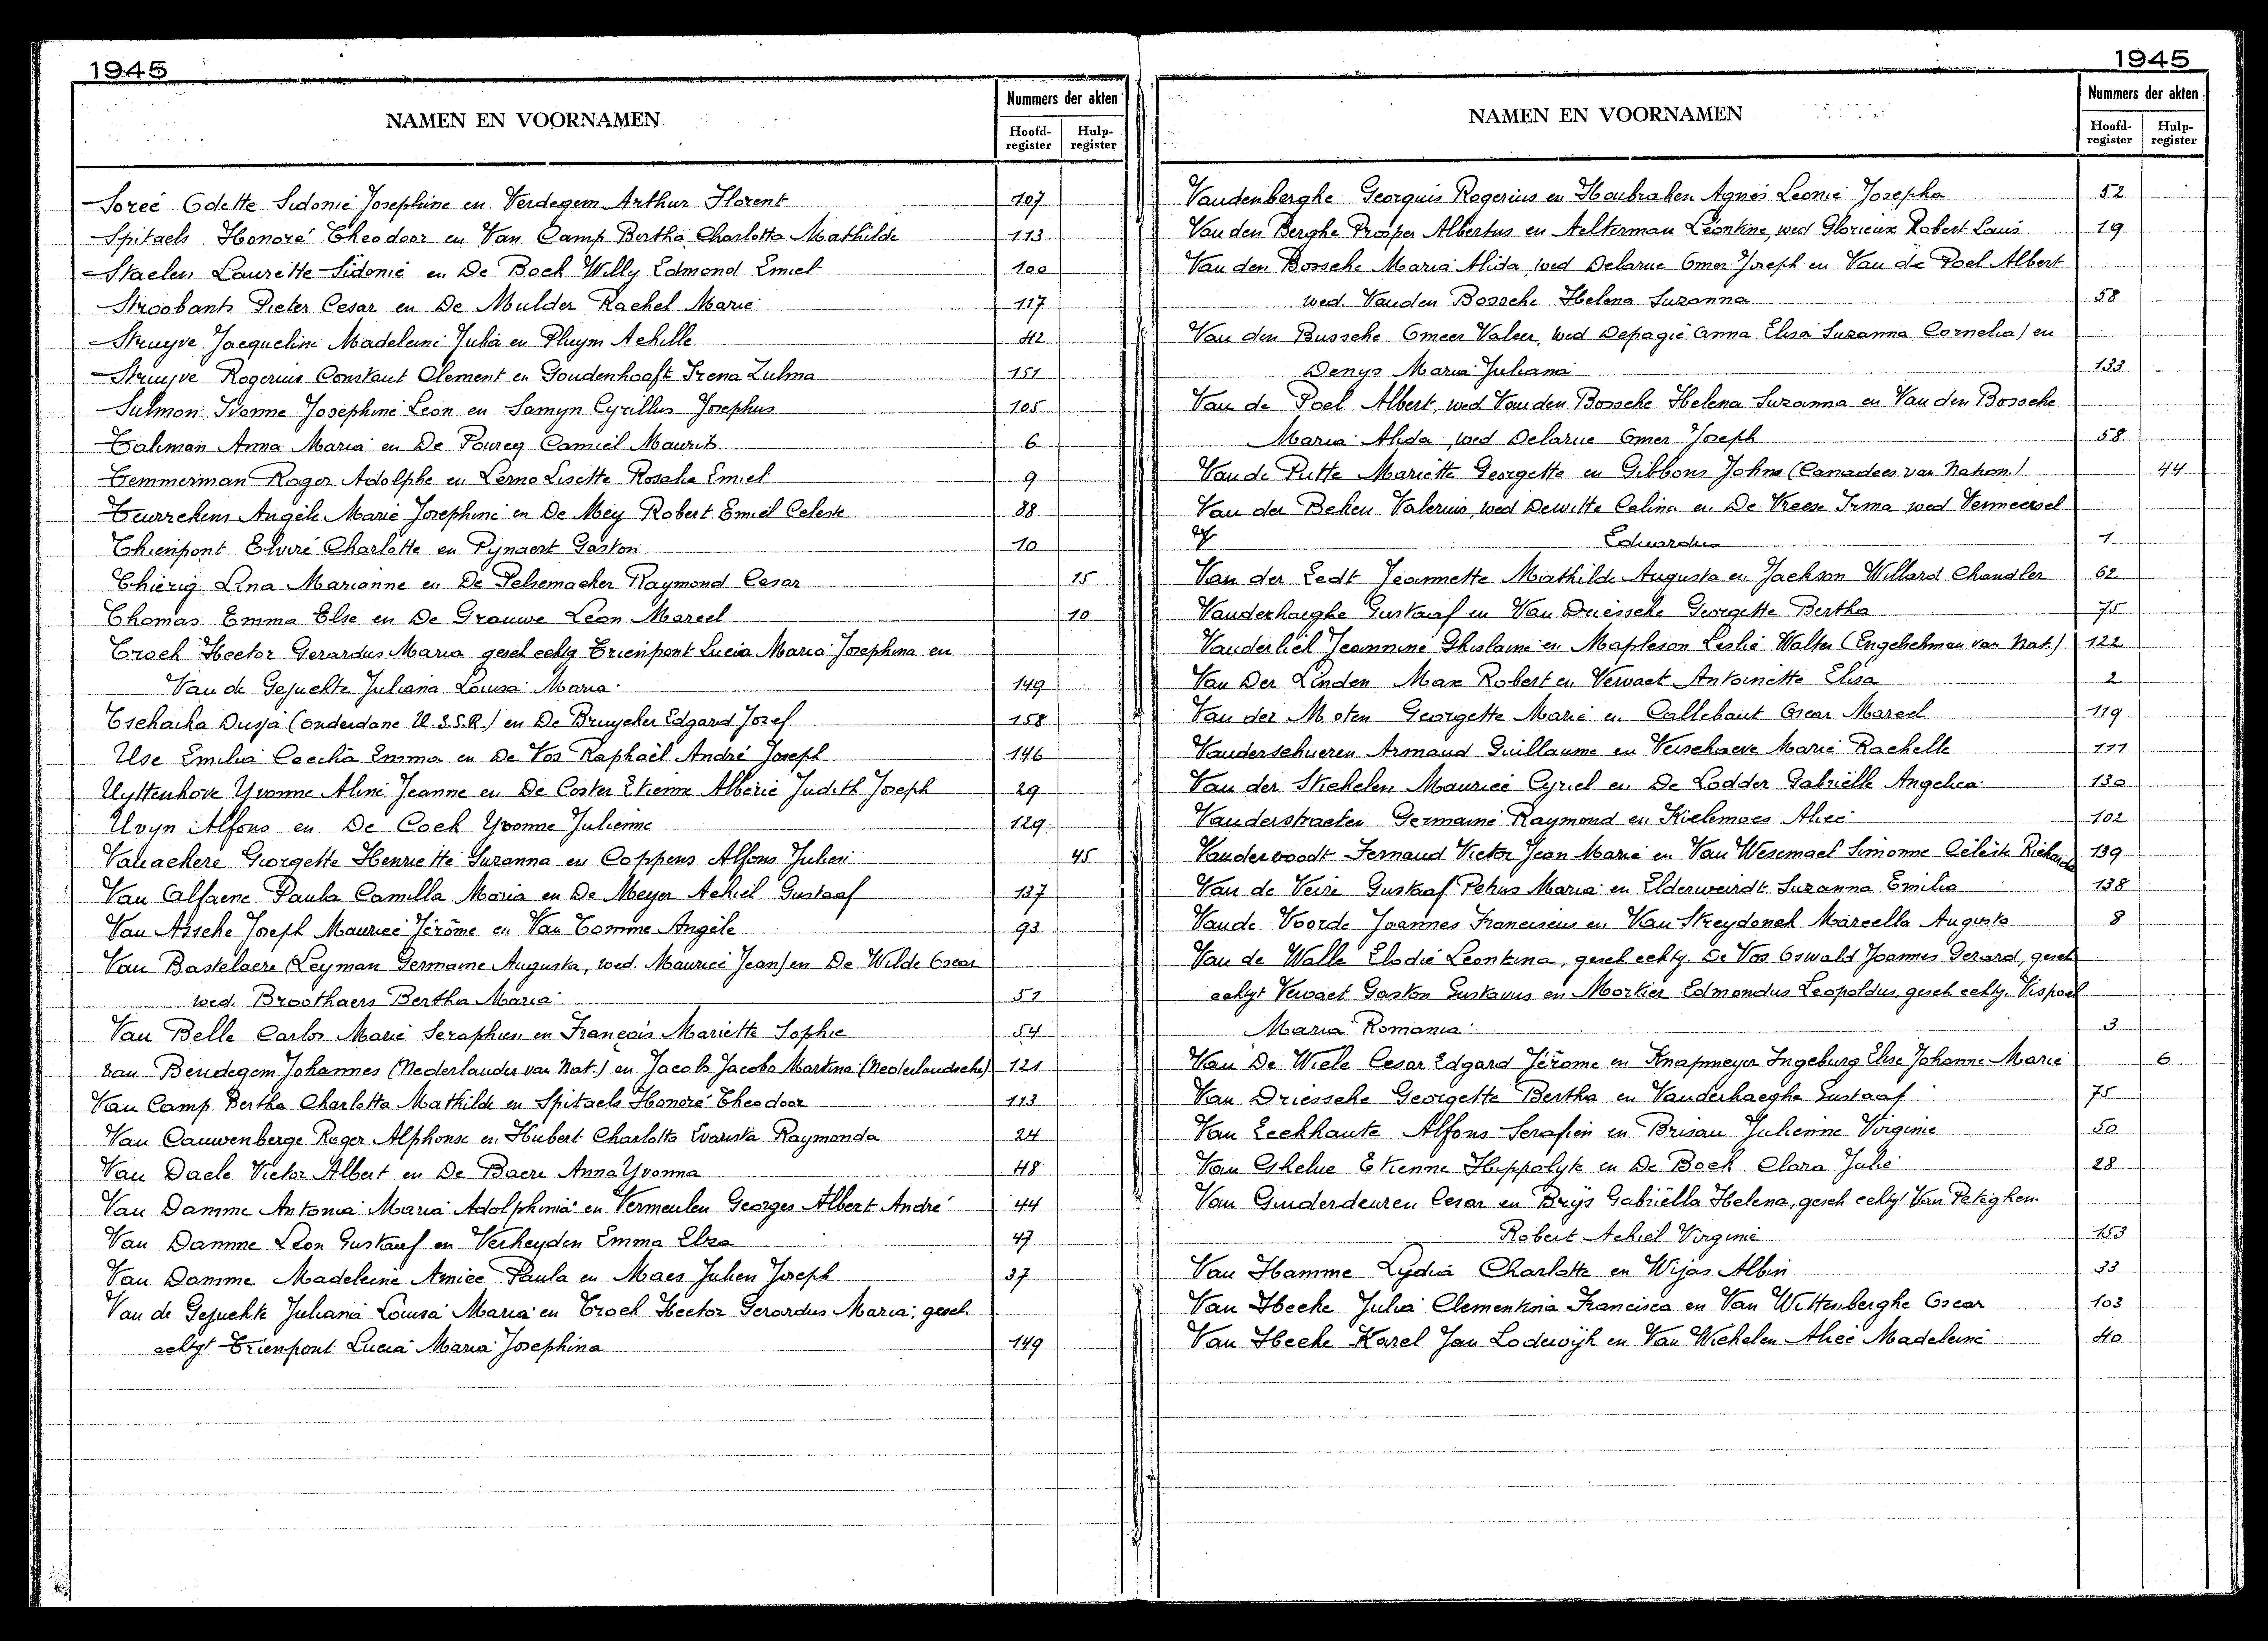 1945
NAMEN EN VOORNAMEN
Nummers der akten
Hoofd-register Hulp-register
Soreé Odette Sidonie Josephine en Verdegem Arthur Florent 107
Spitaels Honoré Theodoor en Van Camp Bertha Charlotta Mathilde 113
Staelen Laurette Sidonie en De Bock Willy Edmond Emiel 100
Stroobants Pieter Cesar en De Mulder Rachel Marie 117
Struyve Jacqueline Madeleine Julia en Pluym Achille 42
Struyve Rogerius Constant Clement en Goudenhooft Irena Zulma 151
Sulmon Ivonne Josephine Leon en Samyn Cyrillus Josephus 105
Taliman Anna Maria en De Pourcq Camiel Maurits 6
Temmerman Roger Adolphe en Lerno Lisette Rosalie Emiel 9
Teurrekens Angèle Marie Josephine en De Mey Robert Emiel Celeste 88
Thienpont Elvire Charlotte en Pynaert Gaston 10
Thierig Lina Marianne en De Pelsemaeker Raymond Cesar 15
Thomas Emma Else en De Grauwe Léon Marcel 10
Troch Hector Gerardus Maria gesch echtg Trienpont Lucia Maria Josephina en
Van de Gejuchte Juliana Louisa Maria 149
Tschacha Dusja (onderdane U.S.S.R.) en De Bruycker Edgard Jozef 158
Use Emilia Cecilia Emma en De Vos Raphaël André Joseph 146
Uyttenhove Yvonne Aline Jeanne en De Coster Etienne Alberic Judith Joseph 29
Uvyn Alfons en De Cock Yvonne Julienne 129
Valiackere Georgette Henriette Suzanna en Coppens Alfons Julien 45
Van Alfaene Paula Camilla Maria en De Meyer Achiel Gustaaf 137
Van Assche Joseph Maurice Jérôme en Van Tomme Angèle 93
Van Bastelaere (Leyman Germaine Augusta, wed. Maurice Jean) en De Wilde Oscar
wed. Broothaers Bertha Maria 51
Van Belle Carlos Marie Seraphien en François Mariette Sophie 54
van Bendegem Johannes (Nederlander van Nat.) en Jacobs Jacoba Martina (Nederlandsche) 121
Van Camp Bertha Charlotta Mathilde en Spitaels Honoré Theodoor 113
Van Cauwenberge Roger Alphonse en Hubert Charlotta Evarista Raymonda 24
Van Daele Victor Albert en De Baere Anna Yvonna 48
Van Damme Antonia Maria Adolphinia en Vermeulen Georges Albert André 44
Van Damme Leon Gustaaf en Verheyden Emma Elza 47
Van Damme Madeleine Amice Paula en Maes Julien Joseph 37
Van de Gejuchte Juliana Louisa Maria en Troch Hector Gerardus Maria; gesch.
echtgt Trienpont Lucia Maria Josephina 149
1945
NAMEN EN VOORNAMEN
Nummers der akten
Hoofd-register Hulp-register
Vandenberghe Georquis Rogerius en Houbraken Agnes Leonie Josepha 52
Van den Berghe Prosper Albertus en Aelterman Léontine, wed Glorieux Robert Louis 19
Van den Bossche Maria Alida, wed Delarue Omer Joseph en Van de Poel Albert
wed. Vanden Bossche Helena Suzanna 58
Van den Bussche Omeer Valeer, wed Depagie Anna Elisa Suzanna Cornelia) en
Denys Maria Juliana 133
Van de Poel Albert, wed Vanden Bossche Helena Suzanna en Van den Bossche
Maria Alida, wed Delarue Omer Joseph 58
Van de Putte Mariette Georgette en Gibbons John (Canadees van Nation.) 44
Van der Beken Valerius, wed Dewitte Celina en De Vreese Irma wed Vermeersel
Eduardus 1
Van der Eedt Jeannette Mathilde Augusta en Jackson Willard Chandler 62
Vanderhaeghe Gustaaf en Van Driessche Georgette Bertha 75
Vanderhiel Jeannine Ghislaine en Mapleson Leslie Walter (Engelschman van Nat.) 122
Van Der Linden Max Robert en Vervaet Antoinette Elisa 2
Van der Moten Georgette Marie en Callebaut Oscar Marcel 119
Vanderschueren Armand Guillaume en Verschaeve Marie Rachelle 111
Van der Stichelen Maurice Cyriel en De Lodder Gabriëlle Angelica 130
Vanderstraeten Germaine Raymond en Kielemoes Alice 102
Vandervoodt Fernand Victor Jean Marie en Van Wesemael Simonne Céleste Richarda 139
Van de Veire Gustaaf Petrus Maria en Elderweirdt Suzanna Emilia 138
Van de Voorde Joannes Franciscus en Van Streydonck Marcella Augusta 8
Van de Walle Elodie Leontina, gesch echtg. De Vos Oswald Joannes Gerard, gesch
echtgt Vervaet Gaston Gustavus en Mortier Edmondus Leopoldus, gesch echtg. Vispoel
Maria Romania 3
Van De Wiele Cesar Edgard Jérome en Knapmeyer Ingeburg Else Johanne Marie 6
Van Driessche Georgette Bertha en Vanderhaeghe Gustaaf 75
Van Eeckhaute Alfons Serafien en Brisau Julienne Virginie 50
Van Ghelue Etienne Hippolyte en De Bock Clara Julie 28
Van Guiderdeuren Cesar en Brijs Gabriëlla Helena, gesch echtgt Van Peteghem
Robert Achiel Virginie 153
Van Hamme Lydia Charlotte en Wijas Albin 33
Van Hecke Julia Clementina Francisca en Van Wittenberghe Oscar 103
Van Hecke Karel Jan Lodewijk en Van Wichelen Alice Madeleine 40